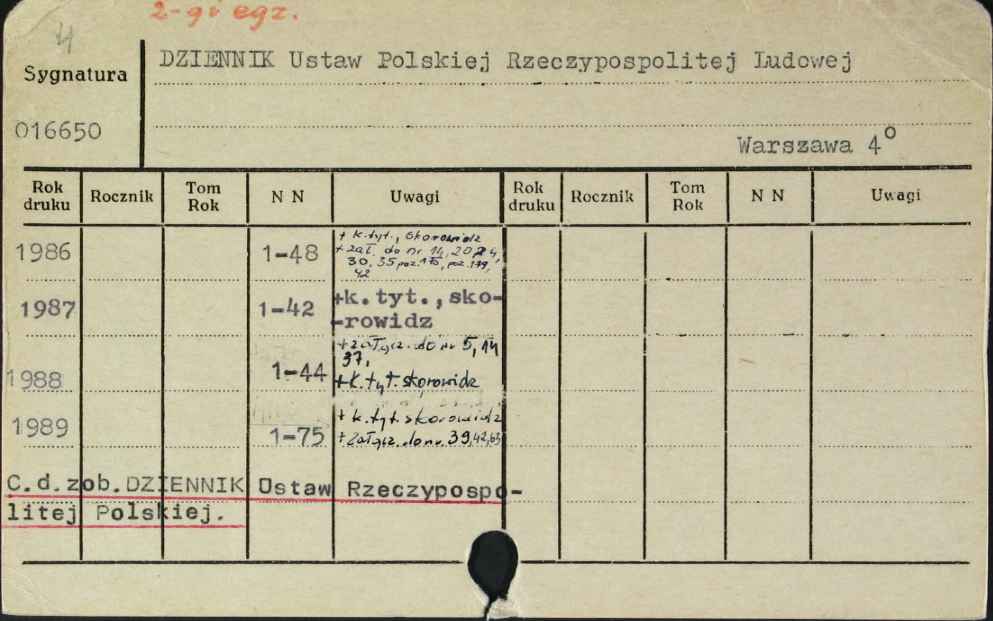 2-gi egz.
4
DZIENNIK Ustaw Polskiej Rzeczypospolitej Ludowej
Sygnatura
016650
Warszawa 4°
Rok druku Rocznik Tom Rok N N Uwagi Rok druku Rocznik Tom Rok N N Uwagi
1986 1-48 + k.tyt., skorowidz
+ zał. do nr 14, 20, 24,
30, 35 poz. 175, poz. 179,
42
1987 1-42 +k.tyt.,sko-
-rowidz
+ załącz. do nr 5, 14
37,
1988 1-44 +k.tyt. skorowidz
1989 + k.tyt. skorowidz
1-75 + załącz. do nr. 39,42,63
C.d.zob.DZIENNIK Ustaw Rzeczypospo-
litej Polskiej.